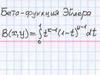 Бета-функция Эйлера
B(x,y)=∫₀¹t^{x-1}(1-t)^{y-1}dt